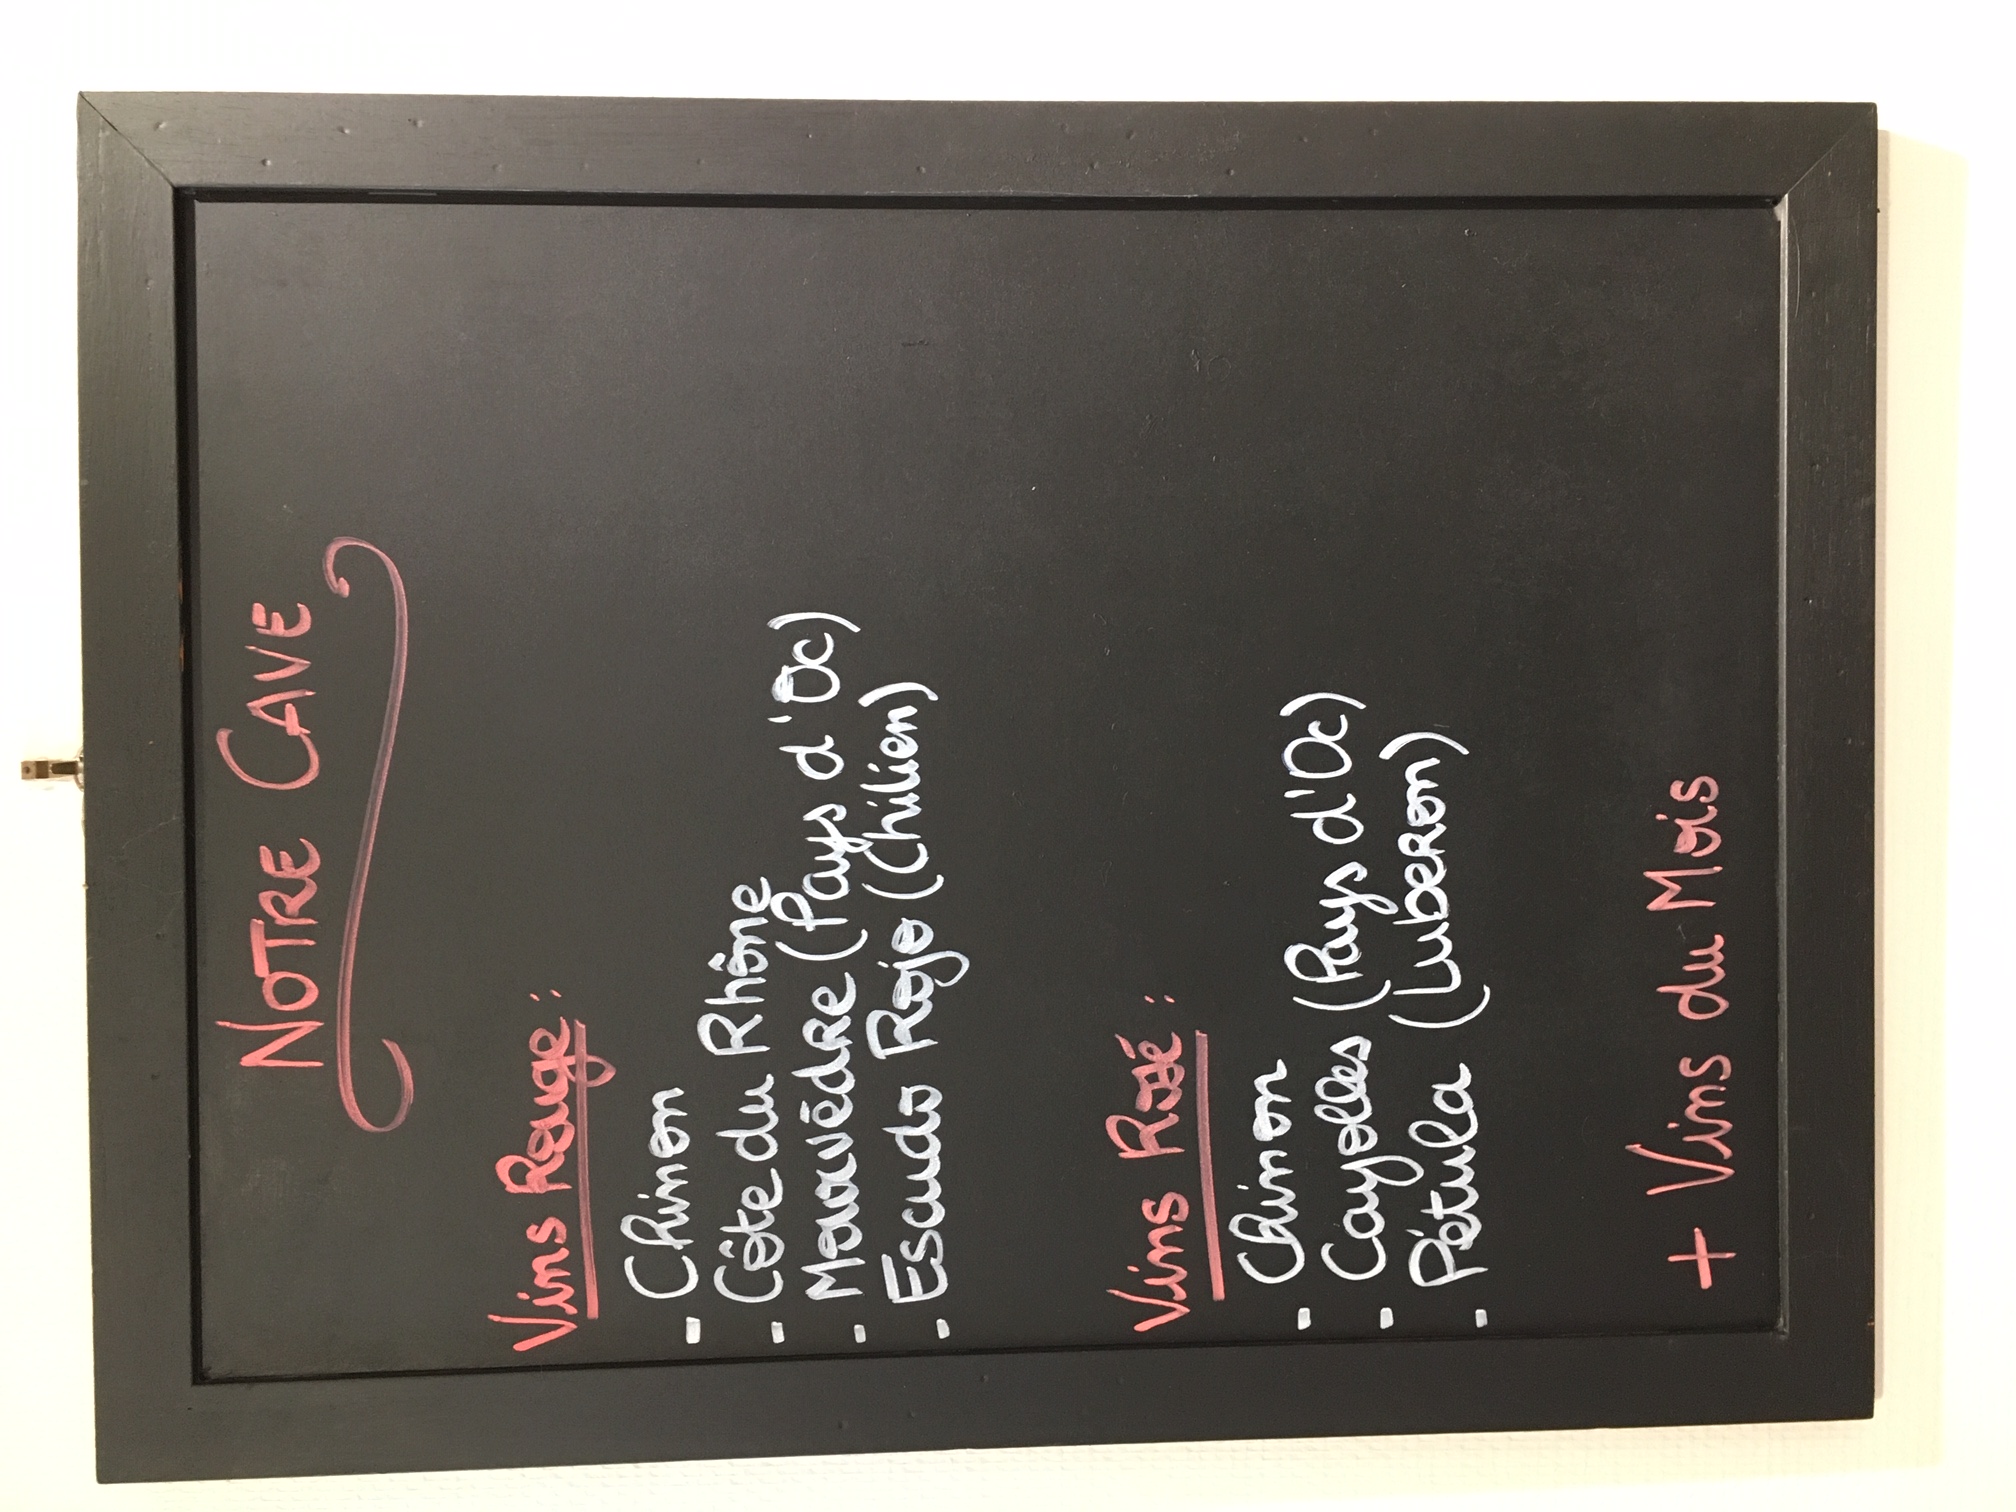 NOTRE CAVE
Vins Rouge:
- Chinon
- Côte du Rhône
- Mourvèdre (Pays d'Oc)
- Escudo Rojo (Chilien)
Vins Rosé:
- Chinon
- Cayolles (Pays d'Oc)
- Pétula (Luberon)
+ Vins du Mois